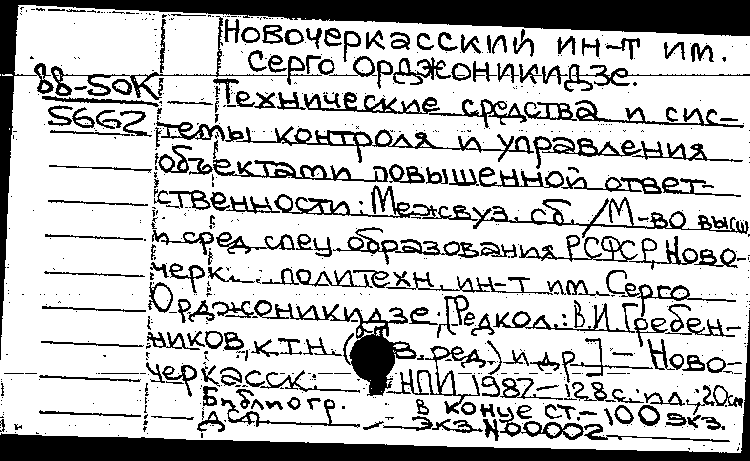 Новочеркасский ин-т им.
Серго Орджоникидзе.
88-50К
5662
Технические средства и сис-
темы контроля и управления
объектами повышенной ответ-
ственности: Межвуз. сб. / М-во высш.
и сред. спец. образования РСФСР, Ново-
черк. политехн. ин-т им. Серго
Орджоникидзе; [Редкол.: В.И. Гребен-
ников, к.т.н. (отв. ред.) и др.] - Ново-
черкасск: НПИ, 1987. - 128 с. ил.; 20 см
Библиогр. в конце ст. - 100 экз.
ДСП - экз. N 00002.